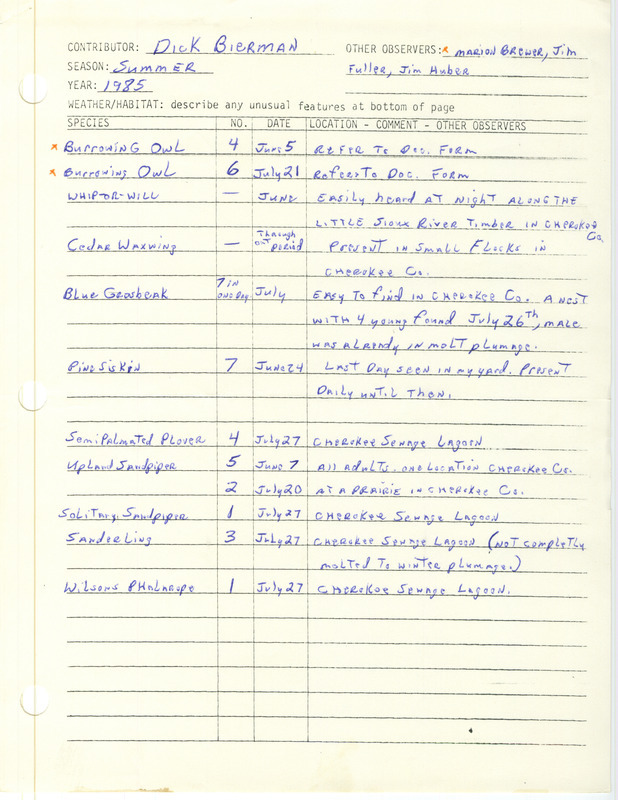 CONTRIBUTOR: Dick Bierman OTHER OBSERVERS: * Marion Brewer, Jim
SEASON: Summer Fuller, Jim Huber
YEAR: 1985
WEATHER/HABITAT: describe any unusual features at bottom of page
SPECIES NO. DATE LOCATION - COMMENT - OTHER OBSERVERS
* Burrowing Owl 4 June 5 Refer to Doc. Form
* Burrowing Owl 6 July 21 Refer to Doc. Form
Whip-or-will — June Easily heard at night along the
Little Sioux River Timber in Cherokee Co.
Cedar Waxwing — Throughout period Present in small flocks in
Cherokee Co.
Blue Grosbeak 7 in one day July Easy to find in Cherokee Co. A nest
with 4 young found July 26th, male
was already in molt plumage.
Pine Siskin 7 June 24 Last day seen in my yard. Present
Daily until then.
Semipalmated Plover 4 July 27 Cherokee Sewage Lagoon
Upland Sandpiper 5 June 7 All adults. one location Cherokee Co.
2 July 20 At a prairie in Cherokee Co.
Solitary Sandpiper 1 July 27 Cherokee Sewage Lagoon
Sanderling 3 July 27 Cherokee Sewage Lagoon (not completly
molted to winter plumage.)
Wilsons Phalarope 1 July 27 Cherokee Sewage Lagoon.